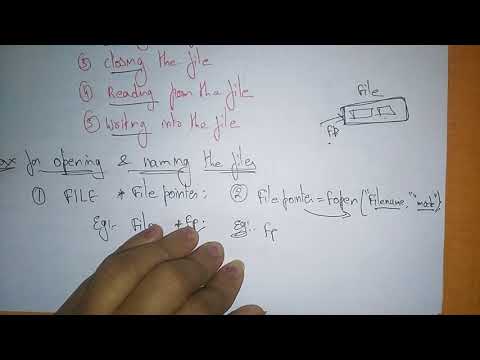 ③ closing the file
④ Reading from the file
⑤ Writing into the file
file
fp
for opening & naming the files
① FILE * File pointer;
② File pointer = fopen ("Filename", "mode")
Eg:- File * fp;
Eg:- fp